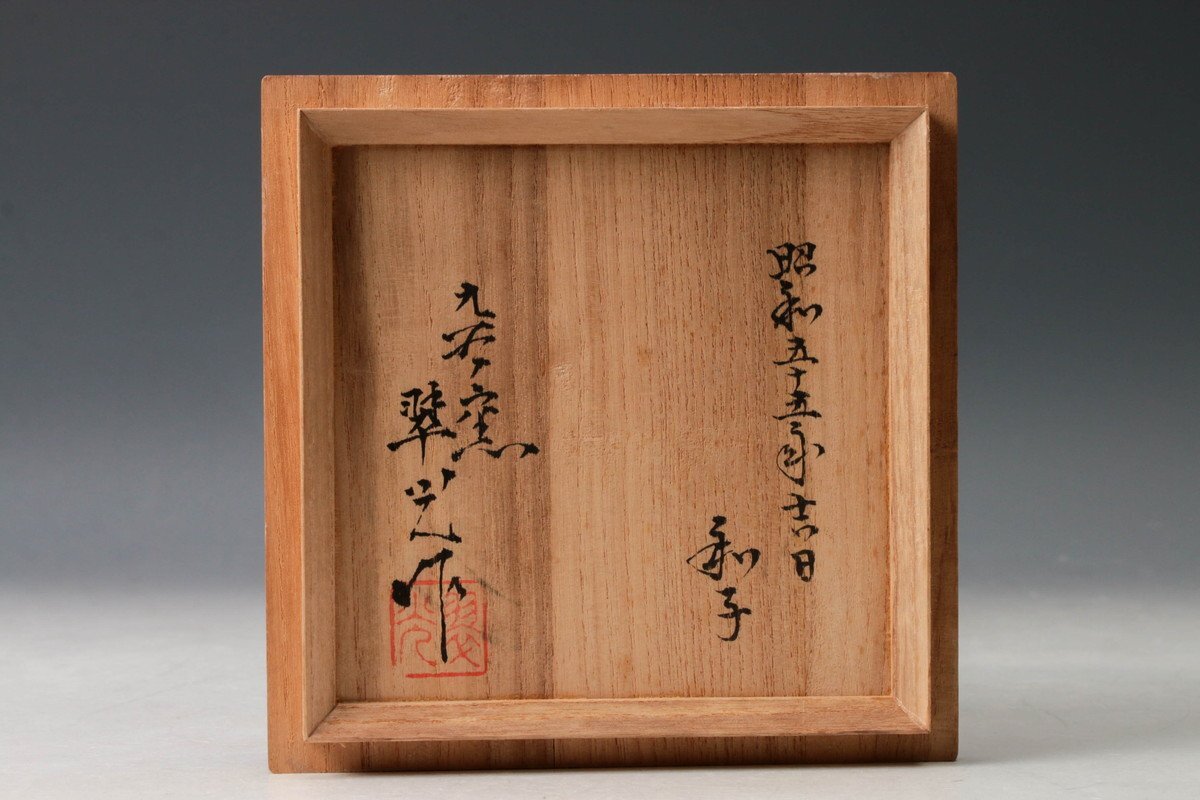 昭和五十五年吉日
和子
九谷窯
翠光作